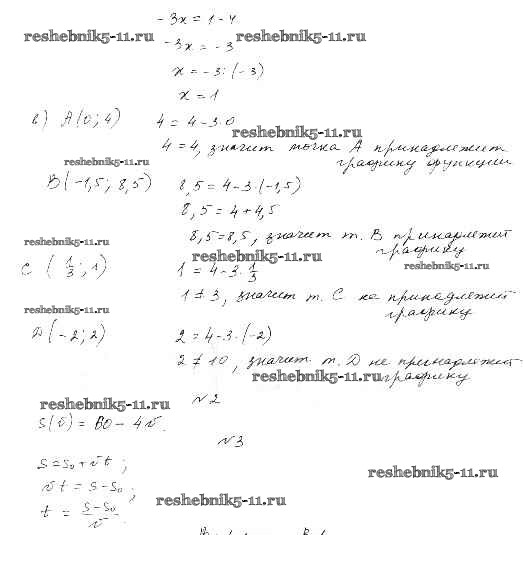 - 3x = 1 - 4
reshebnik5-11.ru - 3x = - 3 reshebnik5-11.ru
x = - 3 : (- 3)
x = 1
в) A(0; 4) 4 = 4 - 3·0
reshebnik5-11.ru
4 = 4, значит точка A принадлежит
графику функции
reshebnik5-11.ru
B(-1,5; 8,5) 8,5 = 4 - 3·(-1,5)
8,5 = 4 + 4,5
8,5 = 8,5, значит т. B принадлежит
графику
reshebnik5-11.ru reshebnik5-11.ru
C (1/3; 1) 1 = 4 - 3·1/3 reshebnik5-11.ru
1 ≠ 3, значит т. C не принадлежит
графику
reshebnik5-11.ru
D(-2; 2) 2 = 4 - 3·(-2)
2 ≠ 10, значит т. D не принадлежит
reshebnik5-11.ru графику
reshebnik5-11.ru №2
S(v) = 80 - 4v.
№3
S = S₀ + vt; reshebnik5-11.ru
vt = S - S₀;
t = (S - S₀)/v. reshebnik5-11.ru